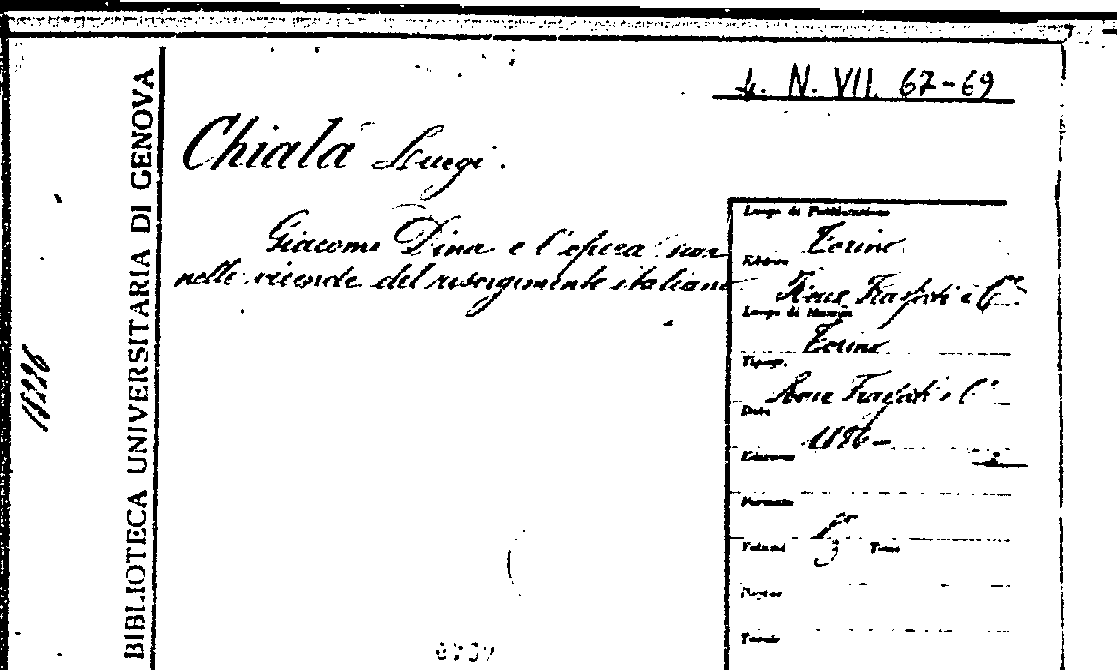 4. N. VII. 67-69
BIBLIOTECA UNIVERSITARIA DI GENOVA
Chiala Luigi.
Giacomo Dina e l'opera sua
nelle vicende del risorgimento italiano
Luogo di Pubblicazione
Torino
Editore
Roux Frassati e Cº
Luogo di Stampa
Torino
Tipogr.
Roux Frassati e Cº
Data
1896-
Edizione
Formato
8º
Volumi 3 Tomo
Pagine
Tavole